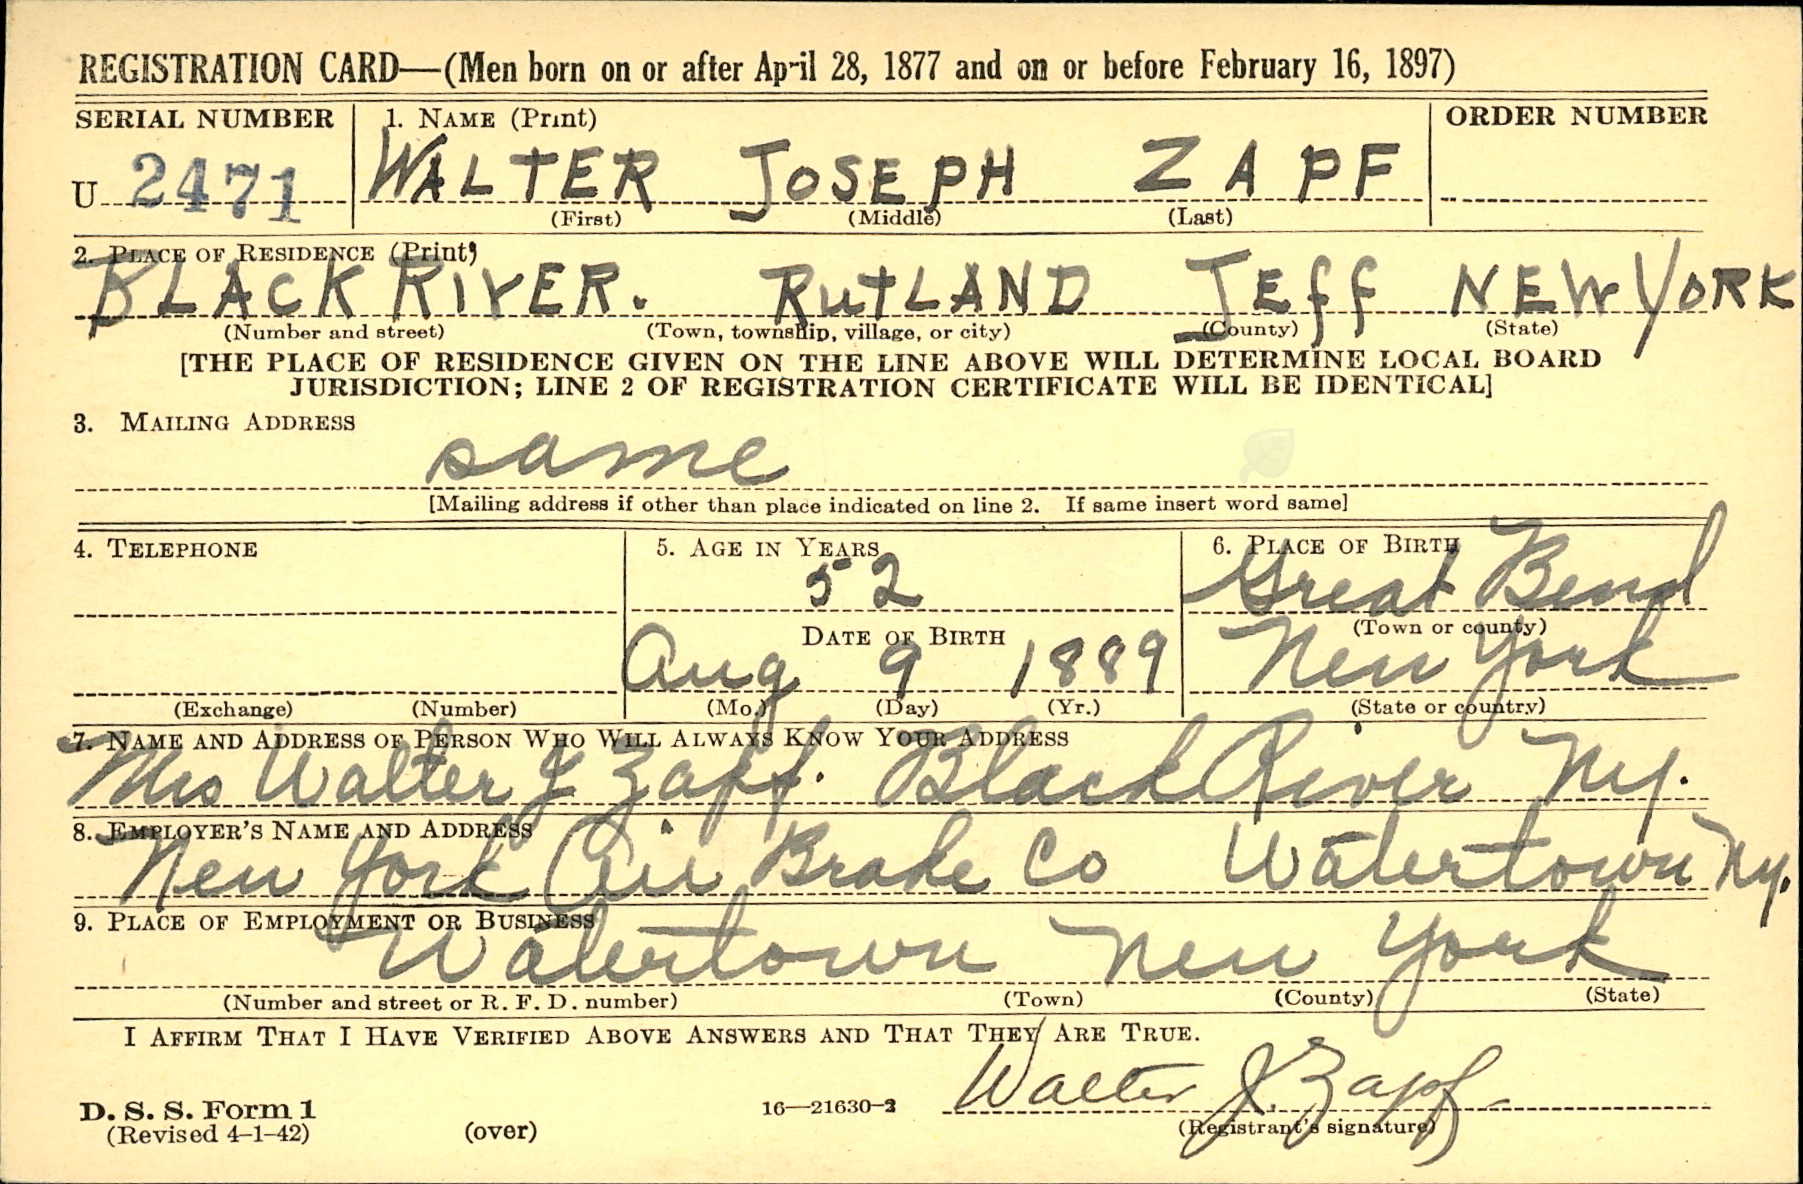 REGISTRATION CARD—(Men born on or after April 28, 1877 and on or before February 16, 1897)
SERIAL NUMBER 1. NAME (Print) ORDER NUMBER
U 2471 WALTER JOSEPH ZAPF
(First) (Middle) (Last)
2. PLACE OF RESIDENCE (Print)
BLACK RIVER. RUTLAND JEFF NEW YORK
(Number and street) (Town, township, village, or city) (County) (State)
[THE PLACE OF RESIDENCE GIVEN ON THE LINE ABOVE WILL DETERMINE LOCAL BOARD
JURISDICTION; LINE 2 OF REGISTRATION CERTIFICATE WILL BE IDENTICAL]
3. MAILING ADDRESS
same
[Mailing address if other than place indicated on line 2. If same insert word same]
4. TELEPHONE 5. AGE IN YEARS 6. PLACE OF BIRTH
52 Great Bend
DATE OF BIRTH (Town or county)
Aug 9 1889 New York
(Exchange) (Number) (Mo.) (Day) (Yr.) (State or country)
7. NAME AND ADDRESS OF PERSON WHO WILL ALWAYS KNOW YOUR ADDRESS
Mrs Walter J Zapf. Black River Ny.
8. EMPLOYER'S NAME AND ADDRESS
New York Air Brake Co Watertown Ny.
9. PLACE OF EMPLOYMENT OR BUSINESS
Watertown New York
(Number and street or R. F. D. number) (Town) (County) (State)
I AFFIRM THAT I HAVE VERIFIED ABOVE ANSWERS AND THAT THEY ARE TRUE.
Walter J. Zapf
D. S. S. Form 1 16—21630-2
(Revised 4-1-42) (over) (Registrant's signature)